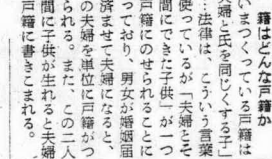 籍はどんな戸籍か
いまつくっている戸籍は
夫婦と氏を同じくする子」
…法律は、こういう言葉
使っているが「夫婦とそ
間にできた子供」が一つ
戸籍にのせられることに
っており、男女が婚姻届
済ませて夫婦になると、
の夫婦を単位に戸籍がつ
られる。また、この二人
間に子供が生れると夫婦
戸籍に書きこまれる。